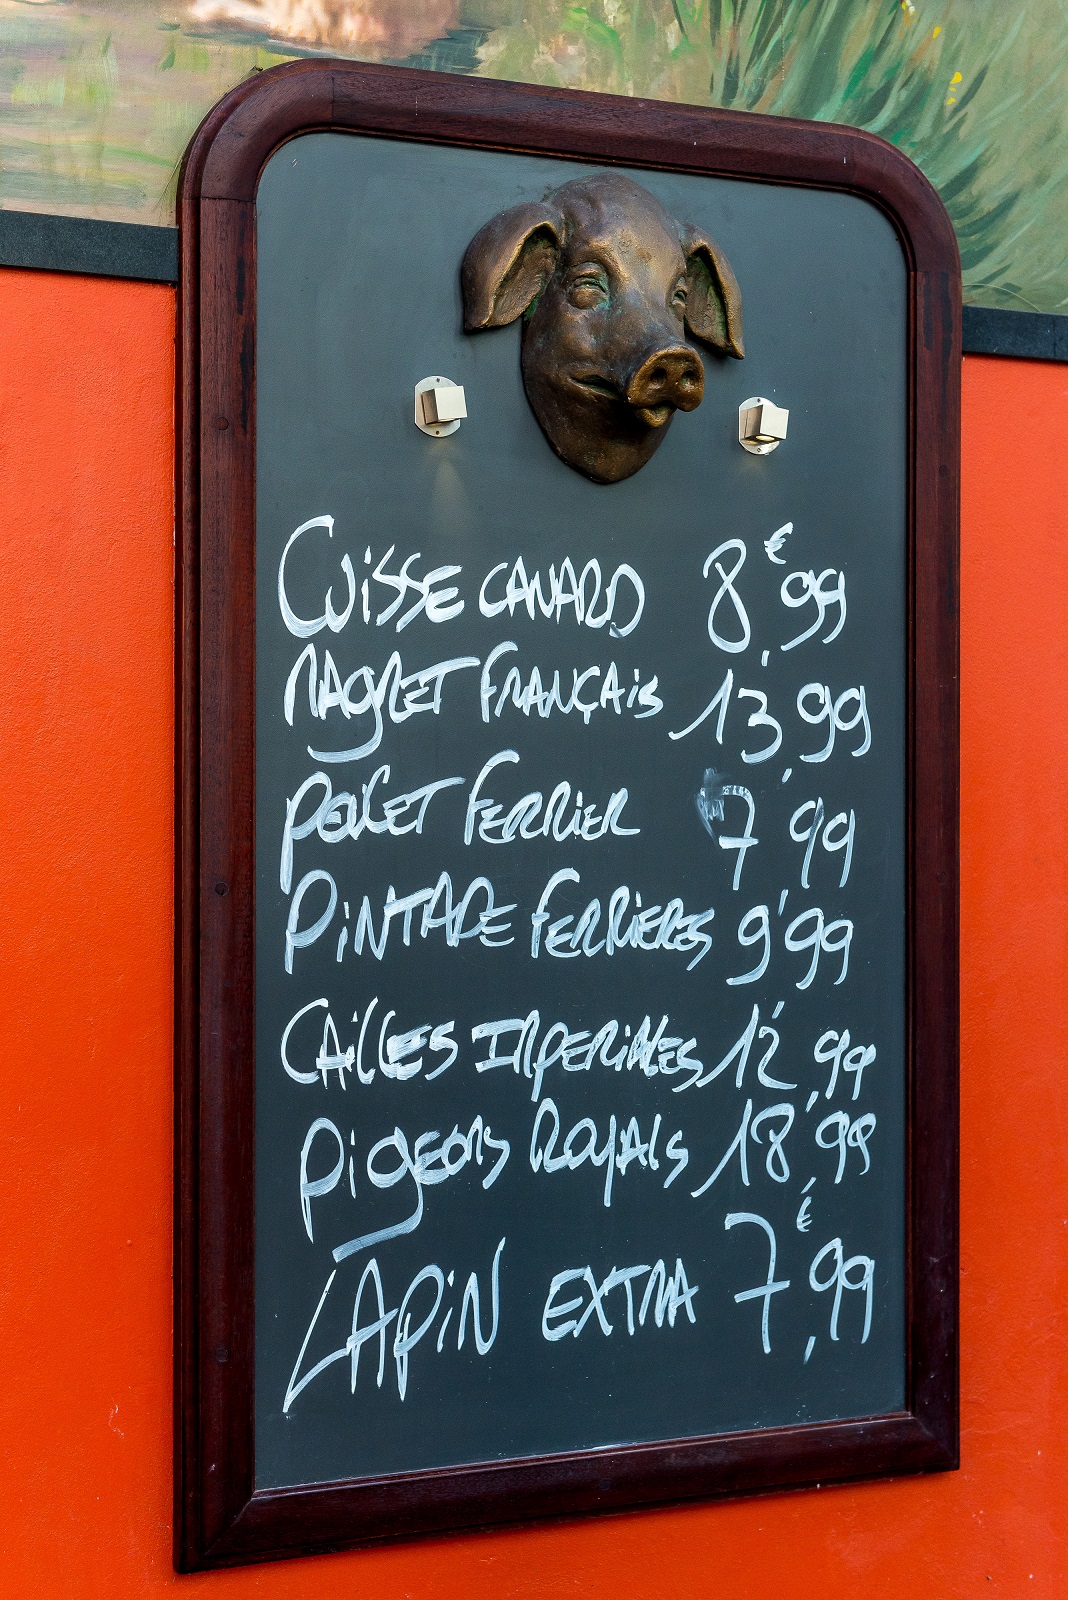 CUISSE CANARD 8€,99
MAGRET FRANÇAIS 13,99
POULET FERMIER 7,99
PINTADE FERMIERES 9,99
CAILLES IMPERIALES 12,99
PIGEONS ROYALS 18,99
LAPIN EXTRA 7€,99